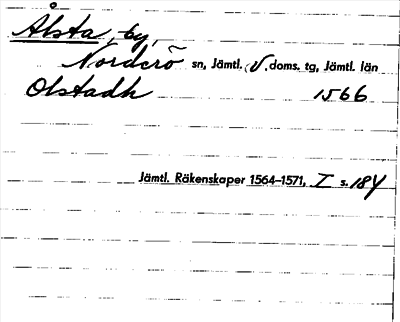 Ålsta, by,
Norderö sn, Jämtl. V. doms. tg, Jämtl. län
Olstadh 1566
Jämtl. Räkenskaper 1564–1571, I s. 184